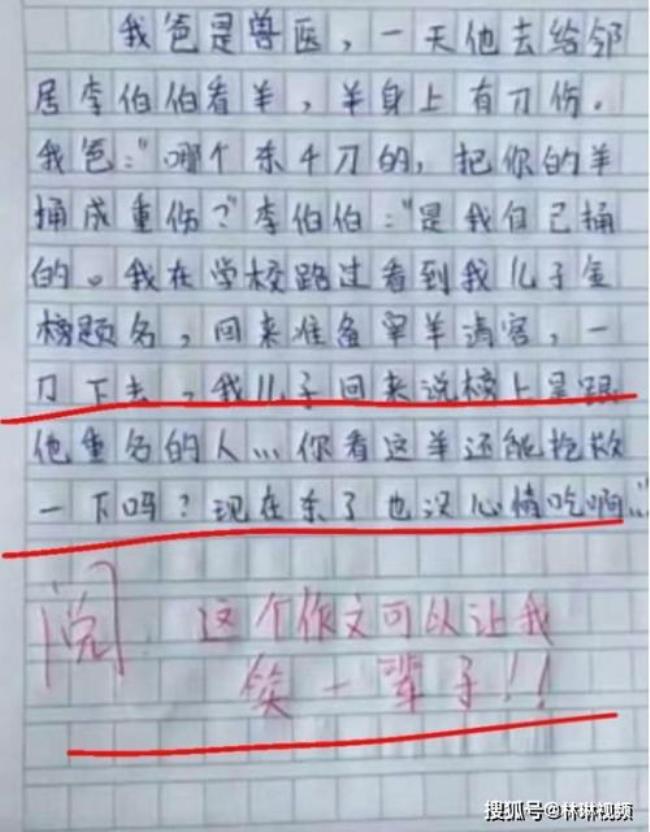 我爸是兽医，一天他去给邻
居李伯伯看羊，羊身上有刀伤。
我爸：“哪个杀千刀的，把你的羊
捅成重伤？”李伯伯：“是我自己捅
的。我在学校路过看到我儿子金
榜题名，回来准备宰羊请客，一
刀下去，我儿子回来说榜上是跟
他重名的人…你看这羊还能抢救
一下吗？现在杀了也没心情吃啊…”
阅 这个作文可以让我
笑一辈子！！
搜狐号@林琳视频